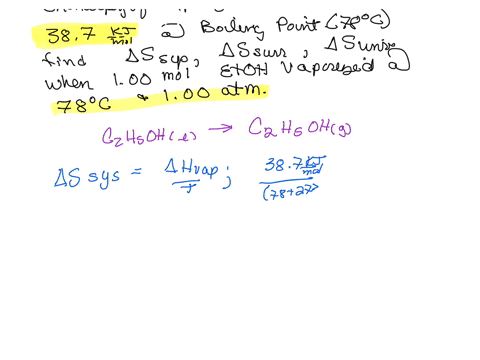 38.7 KJ/mol @ Boiling Point (78°C)
find ΔSsys, ΔSsurr, ΔSuniv
when 1.00 mol EtOH Vaporezed @
78°C & 1.00 atm.
C2H5OH(l) → C2H5OH(g)
ΔS sys = ΔHvap/T ; 38.7 KJ/mol / (78+27